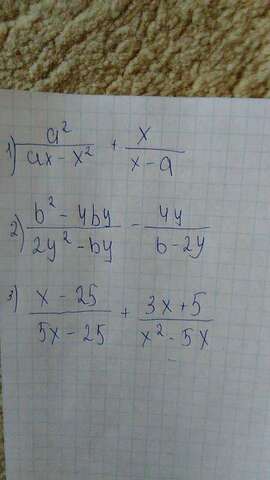 1) a²/(ax - x²) + x/(x - a)
2) (b² - 4by)/(2y² - by) - 4y/(b - 2y)
3) (x - 25)/(5x - 25) + (3x + 5)/(x² - 5x)